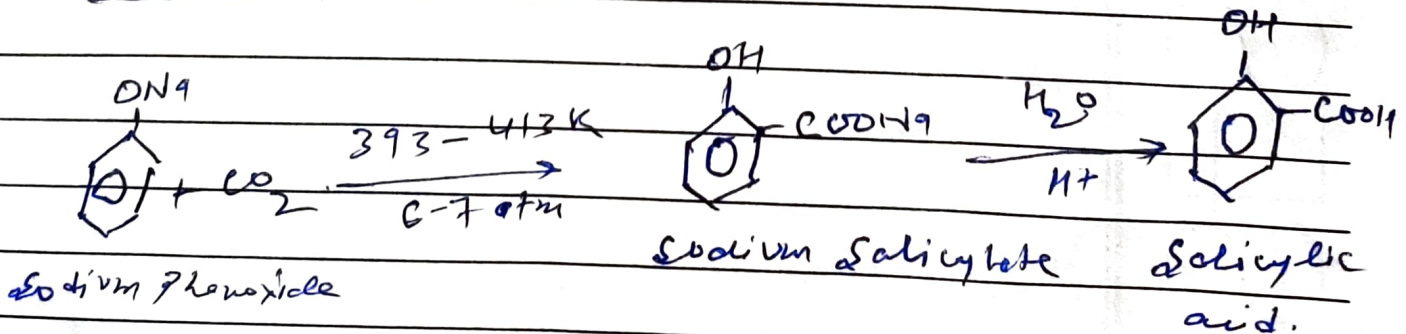 ONa + CO2 393-413K 6-7 atm OH COONa H2O H+ OH COOH
Sodium Phenoxide Sodium Salicylate Salicylic
acid.